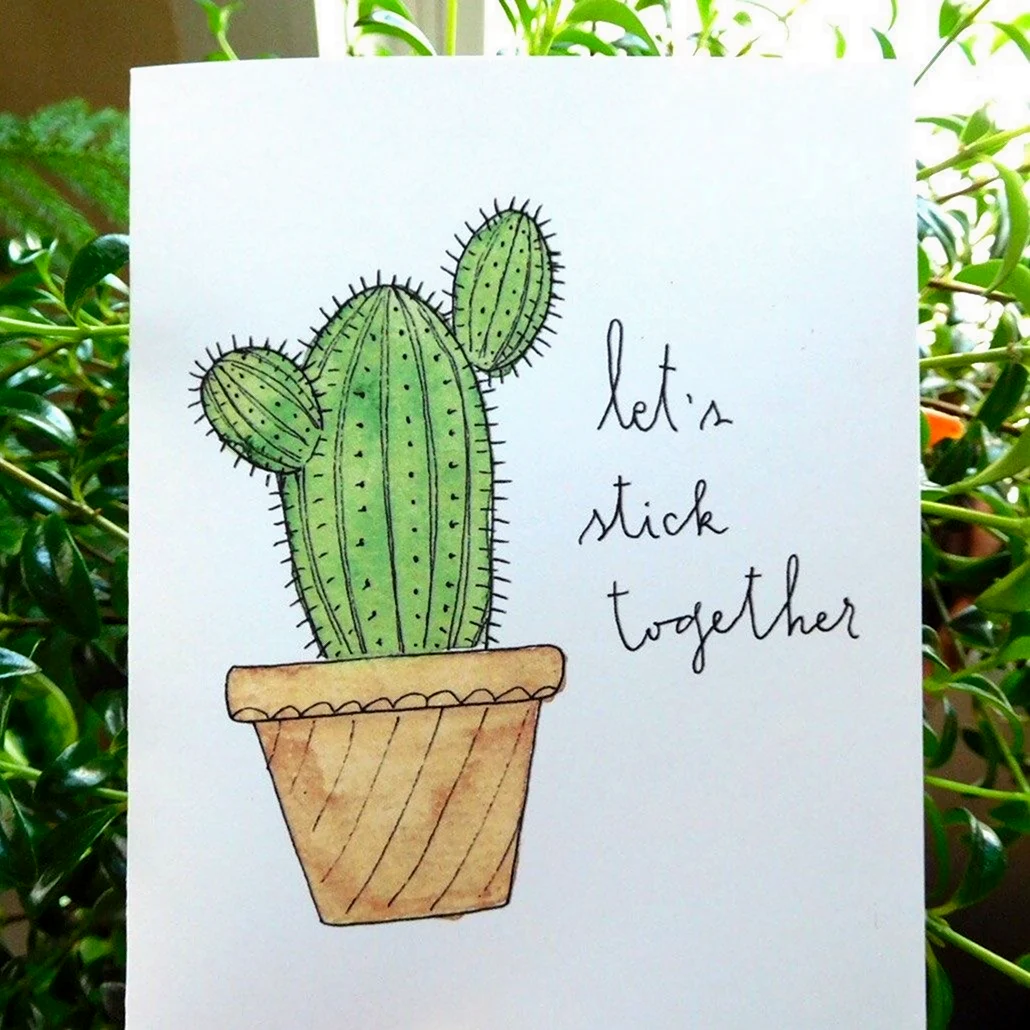 let's
stick
together